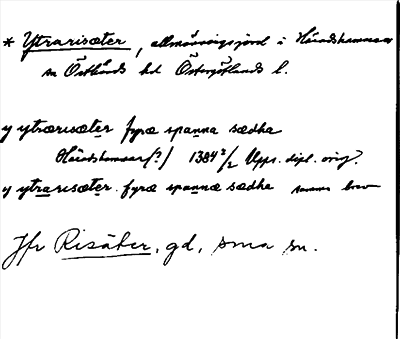 * Ytrarisæter, allmänningsjord i Häradshammar
sn Östkinds hd Östergötlands l.
y ytrærisæter fyræ spanna sædha
Häradshammar(?) 1384 2/2 Upps. dipl. orig.
y ytrarisæter fyræ spannæ sædha samma brev
Jfr Risäter, gd, sma sn.